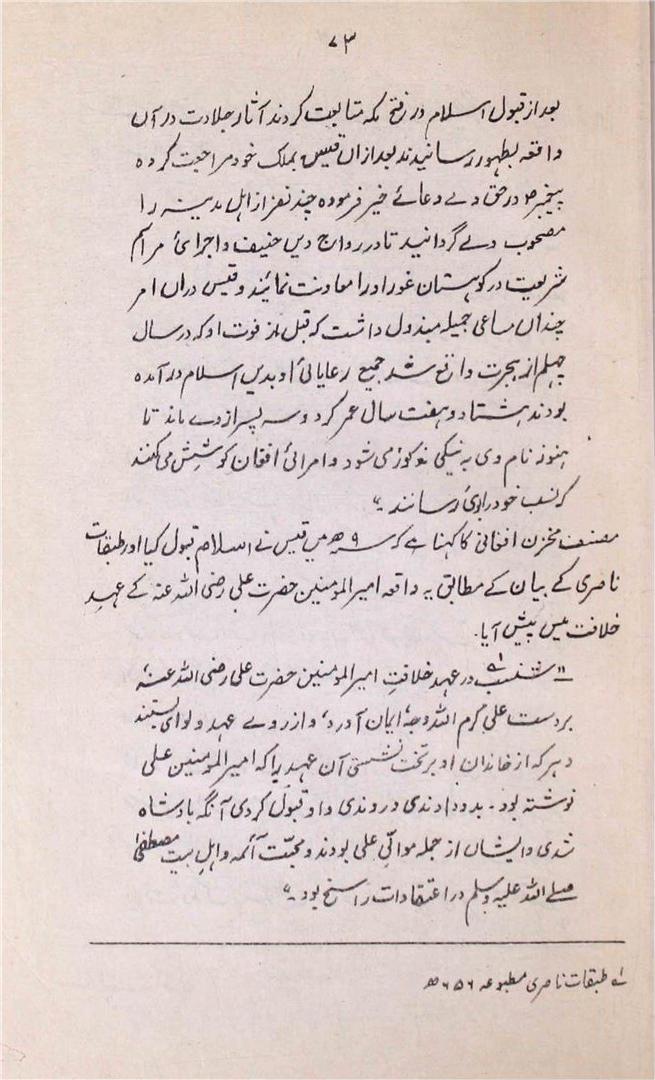 ۷۳
بعد از قبول اسلام در فتح مکہ متابعت کردند آثار جلادت در آں
واقعہ بظہور رسانیدند بعد ازاں قیس بملک خود مراجعت کردہ
پیغمبرؐ در حق دے دعائے خیر فرمودہ چند نفر از اہل مدینہ را
مصحوب دے گردانید تا در رواج دیں حنیف و اجرائ مراسم
شریعت در کوہستان غور او را معاونت نمائند و قیس دراں امر
چنداں مساعی جمیلہ مبذول داشت کہ قبل از فوت او کہ در سال
چہلم از ہجرت واقع شد جمیع رعایائ او بدیں اسلام در آمدہ
بودند ہشتاد و ہفت سال عمر کرد و سہ پسر ازوے ماند تا
ہنوز نام وی بہ نیکی مذکور می شود و امرائ افغان کوشش می کنند
کہ نسب خود را باوئ رسانند۔"
مصنف مخزن افغانی کا کہنا ہے کہ سنہ ۹ھ میں قیس نے اسلام قبول کیا اور طبقات
ناصری کے بیان کے مطابق یہ واقعہ امیر المومنین حضرت علی رضی اللہ عنہ کے عہدِ
خلافت میں پیش آیا۔
"شنسب لہ در عہد خلافت امیر المومنین حضرت علی رضی اللہ عنہٗ
بر دست علی کرم اللہ وجہہٗ ایمان آورد، و از وے عہد و لوای بستد
و ہر کہ از خاندان او بر تخت نشستی آن عہد را کہ امیر المومنین علی
نوشتہ بود۔ بدو دادندی در وندی و او قبول کردی آنگہ بادشاہ
شدی و ایشاں از جملہ موالئ علی بودند و محبّت آئمہ و اہل بیت مصطفیٰ
صلے اللہ علیہ وسلم در اعتقادات راسخ بود۔"
لہ طبقات ناصری مطبوعہ ۶۵۶ھ